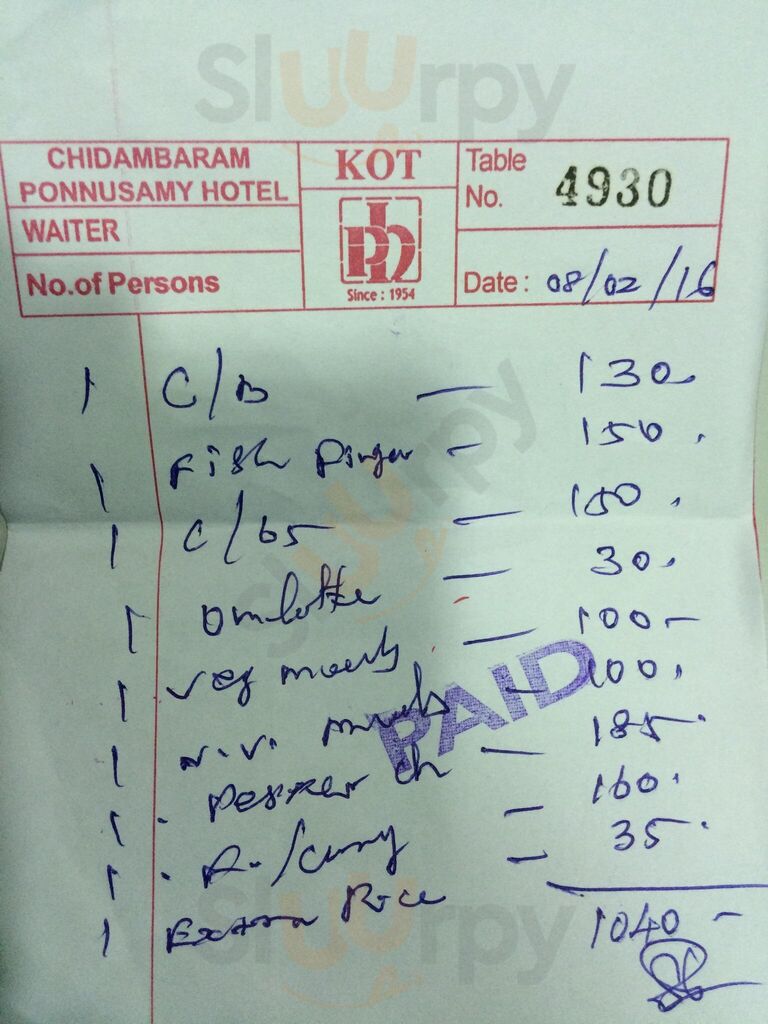 Sluurpy
CHIDAMBARAM
PONNUSAMY HOTEL
KOT
Table
No. 4930
WAITER
No.of Persons
Since : 1954
Date : 08/02/16
1 C/B — 130
1 Fish Pinger — 150
1 C/65 — 150
1 Omlotte — 30
1 Veg meals — 100
1 N.V. meals — 100
1 Pepper ch — 185
1 /curry — 160
1 Extra Rice — 35
PAID
1040
Sluurpy
Sluurpy